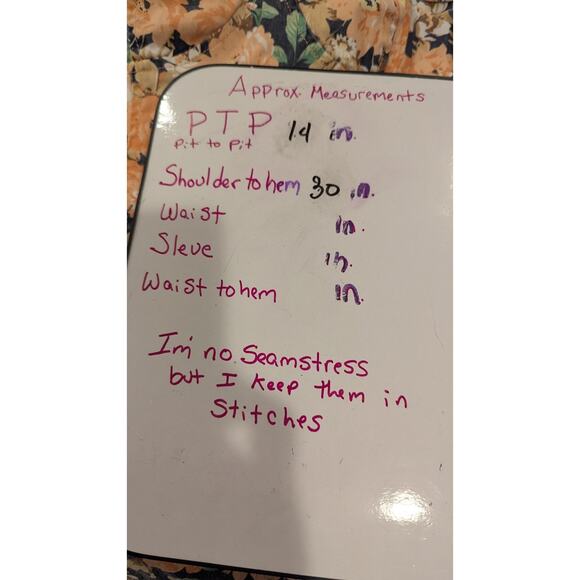 Approx. Measurements
PTP 14 in.
Pit to Pit
Shoulder to hem 30 in.
Waist in.
Sleve in.
Waist to hem in.
I'm no Seamstress
but I keep them in
Stitches